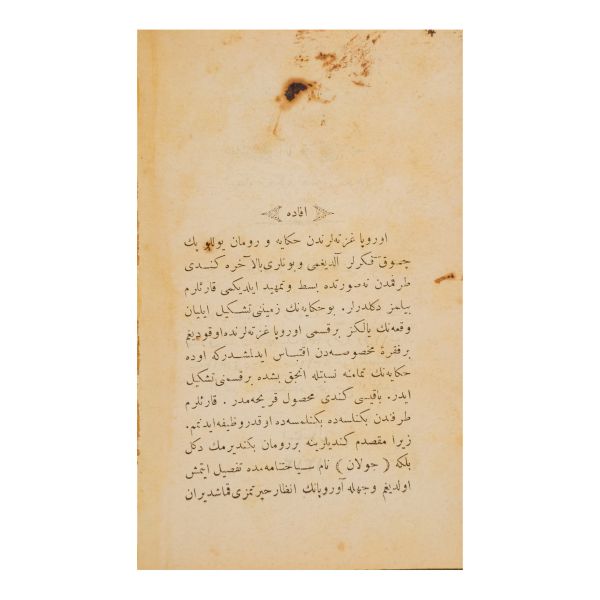 افاده
اوروپا غزته‌لرندن حكایه و رومان یوللو پك
چصوق فكرلر آلدیغمی و بونلری بالآخره كندی
طرفمدن نه‌صورتده بسط و تمهید ایلدیكمی قارئلرم
بیلمز دكلدرلر. بو حكایه‌نك زمیننی تشكیل ایلیان
وقعه‌نك یالكز برقسمی اوروپا غزته‌لرنده اوقودیغم
برفقرهٔ مخصوصه‌دن اقتباس ایدلمشدركه اوده
حكایه‌نك تمامنه نسبتله انجق بشده برقسمنی تشكیل
ایدر. باقیسی كندی محصول قریحه‌مدر. قارئلرم
طرفندن بكنلسه‌ده بكنلمسه‌ده اوقدر وظیفه ایدنمم.
زیرا مقصدم كندیلرینه بررومان بكندیرمك دكل
بلكه (جولان) نام سیاحتنامه‌مده تفصیل ایتمش
اولدیغم وجهله آوروپانك انظار حیرتمزی قماشدیران